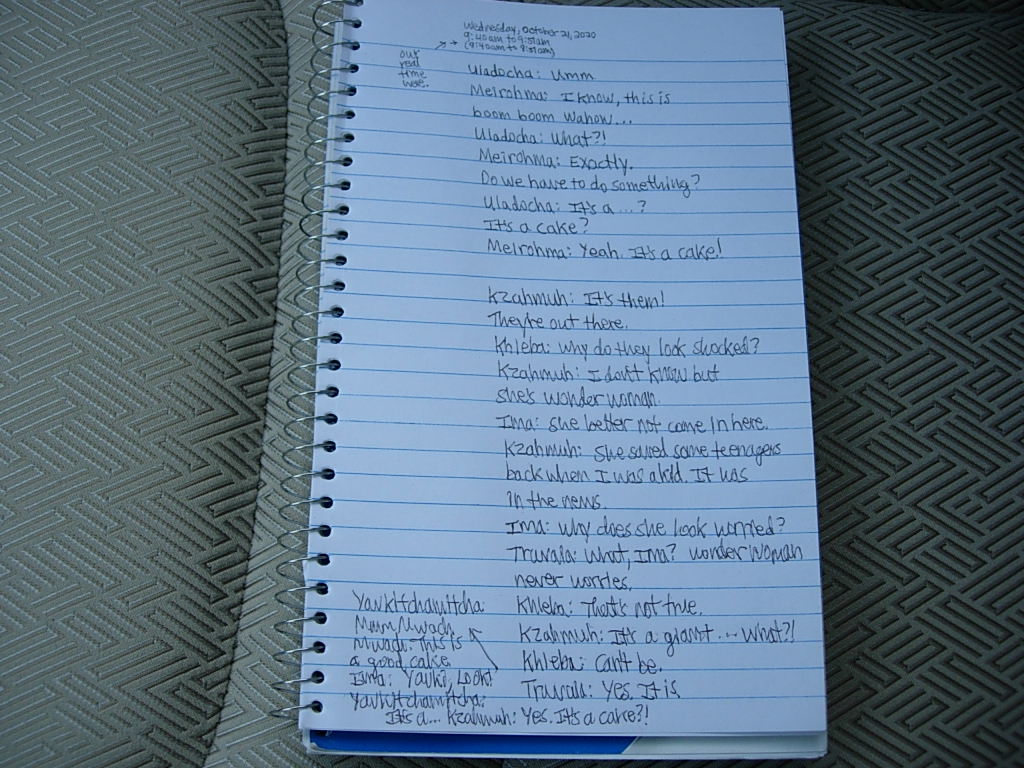 Wednesday, October 21, 2020
9:40am to 9:51am
(9:40am to 9:51am)
our
real
time
here.
Uladocha: Umm
Meirohma: I know, this is
boom boom wahow...
Uladocha: What?!
Meirohma: Exactly.
Do we have to do something?
Uladocha: It's a ...?
It's a cake?
Meirohma: Yeah. It's a cake!
Kzahmuh: It's them!
They're out there.
Khleba: Why do they look shocked?
Kzahmuh: I don't know but
she's wonder woman.
Ima: she better not come in here.
Kzahmuh: she saved some teenagers
back when I was a kid. It was
in the news.
Ima: why does she look worried?
Truvala: what, Ima? wonder woman
never worries.
Khleba: That's not true.
Kzahmuh: It's a giant ... what?!
Khleba: Can't be.
Truvala: Yes, It is.
Yavkitchamitcha:
Mwadi: This is
a good cake.
Ima: Yavki, Look!
Yavkitchamitcha:
It's a... Kzahmuh: Yes. It's a cake?!